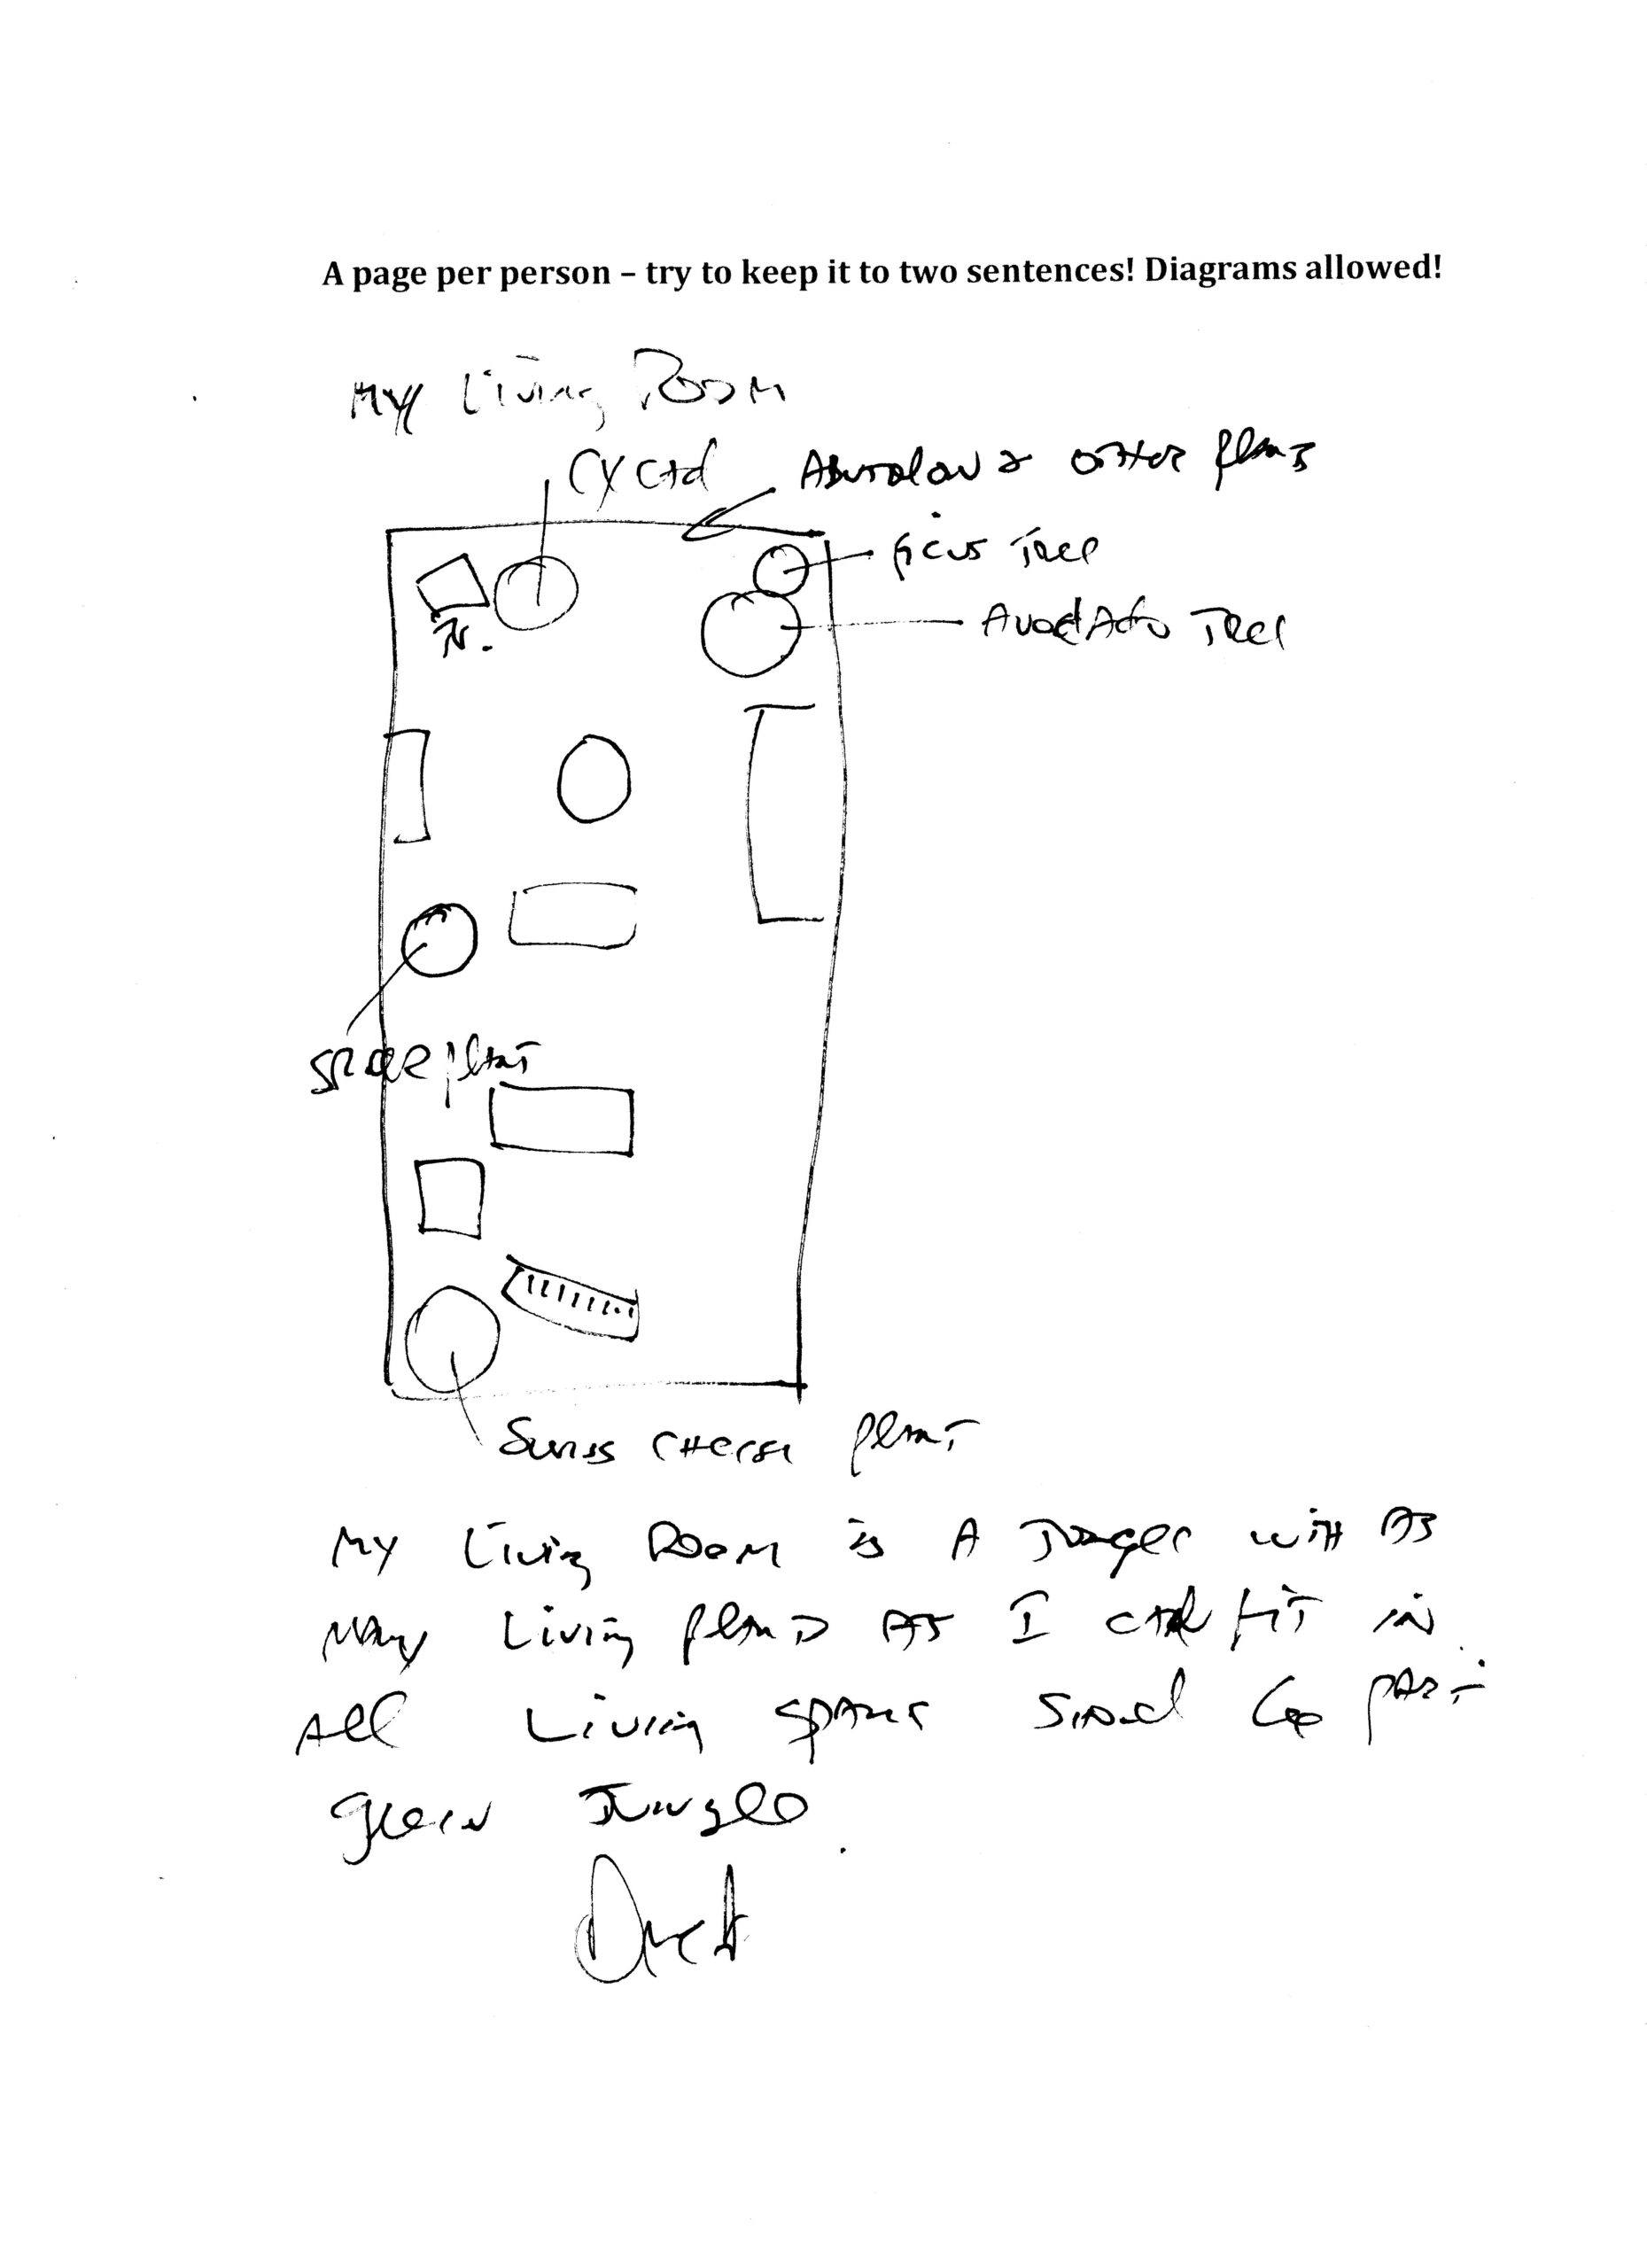 A page per person – try to keep it to two sentences! Diagrams allowed!
My Living Room
Cycad
& other plants
Ficus Tree
Avocado Tree
TV.
plant
Swiss Cheese plant
My Living Room is A Jungle with as
Many Living plants As I can fit in.
All Living spaces should be part
green Jungle